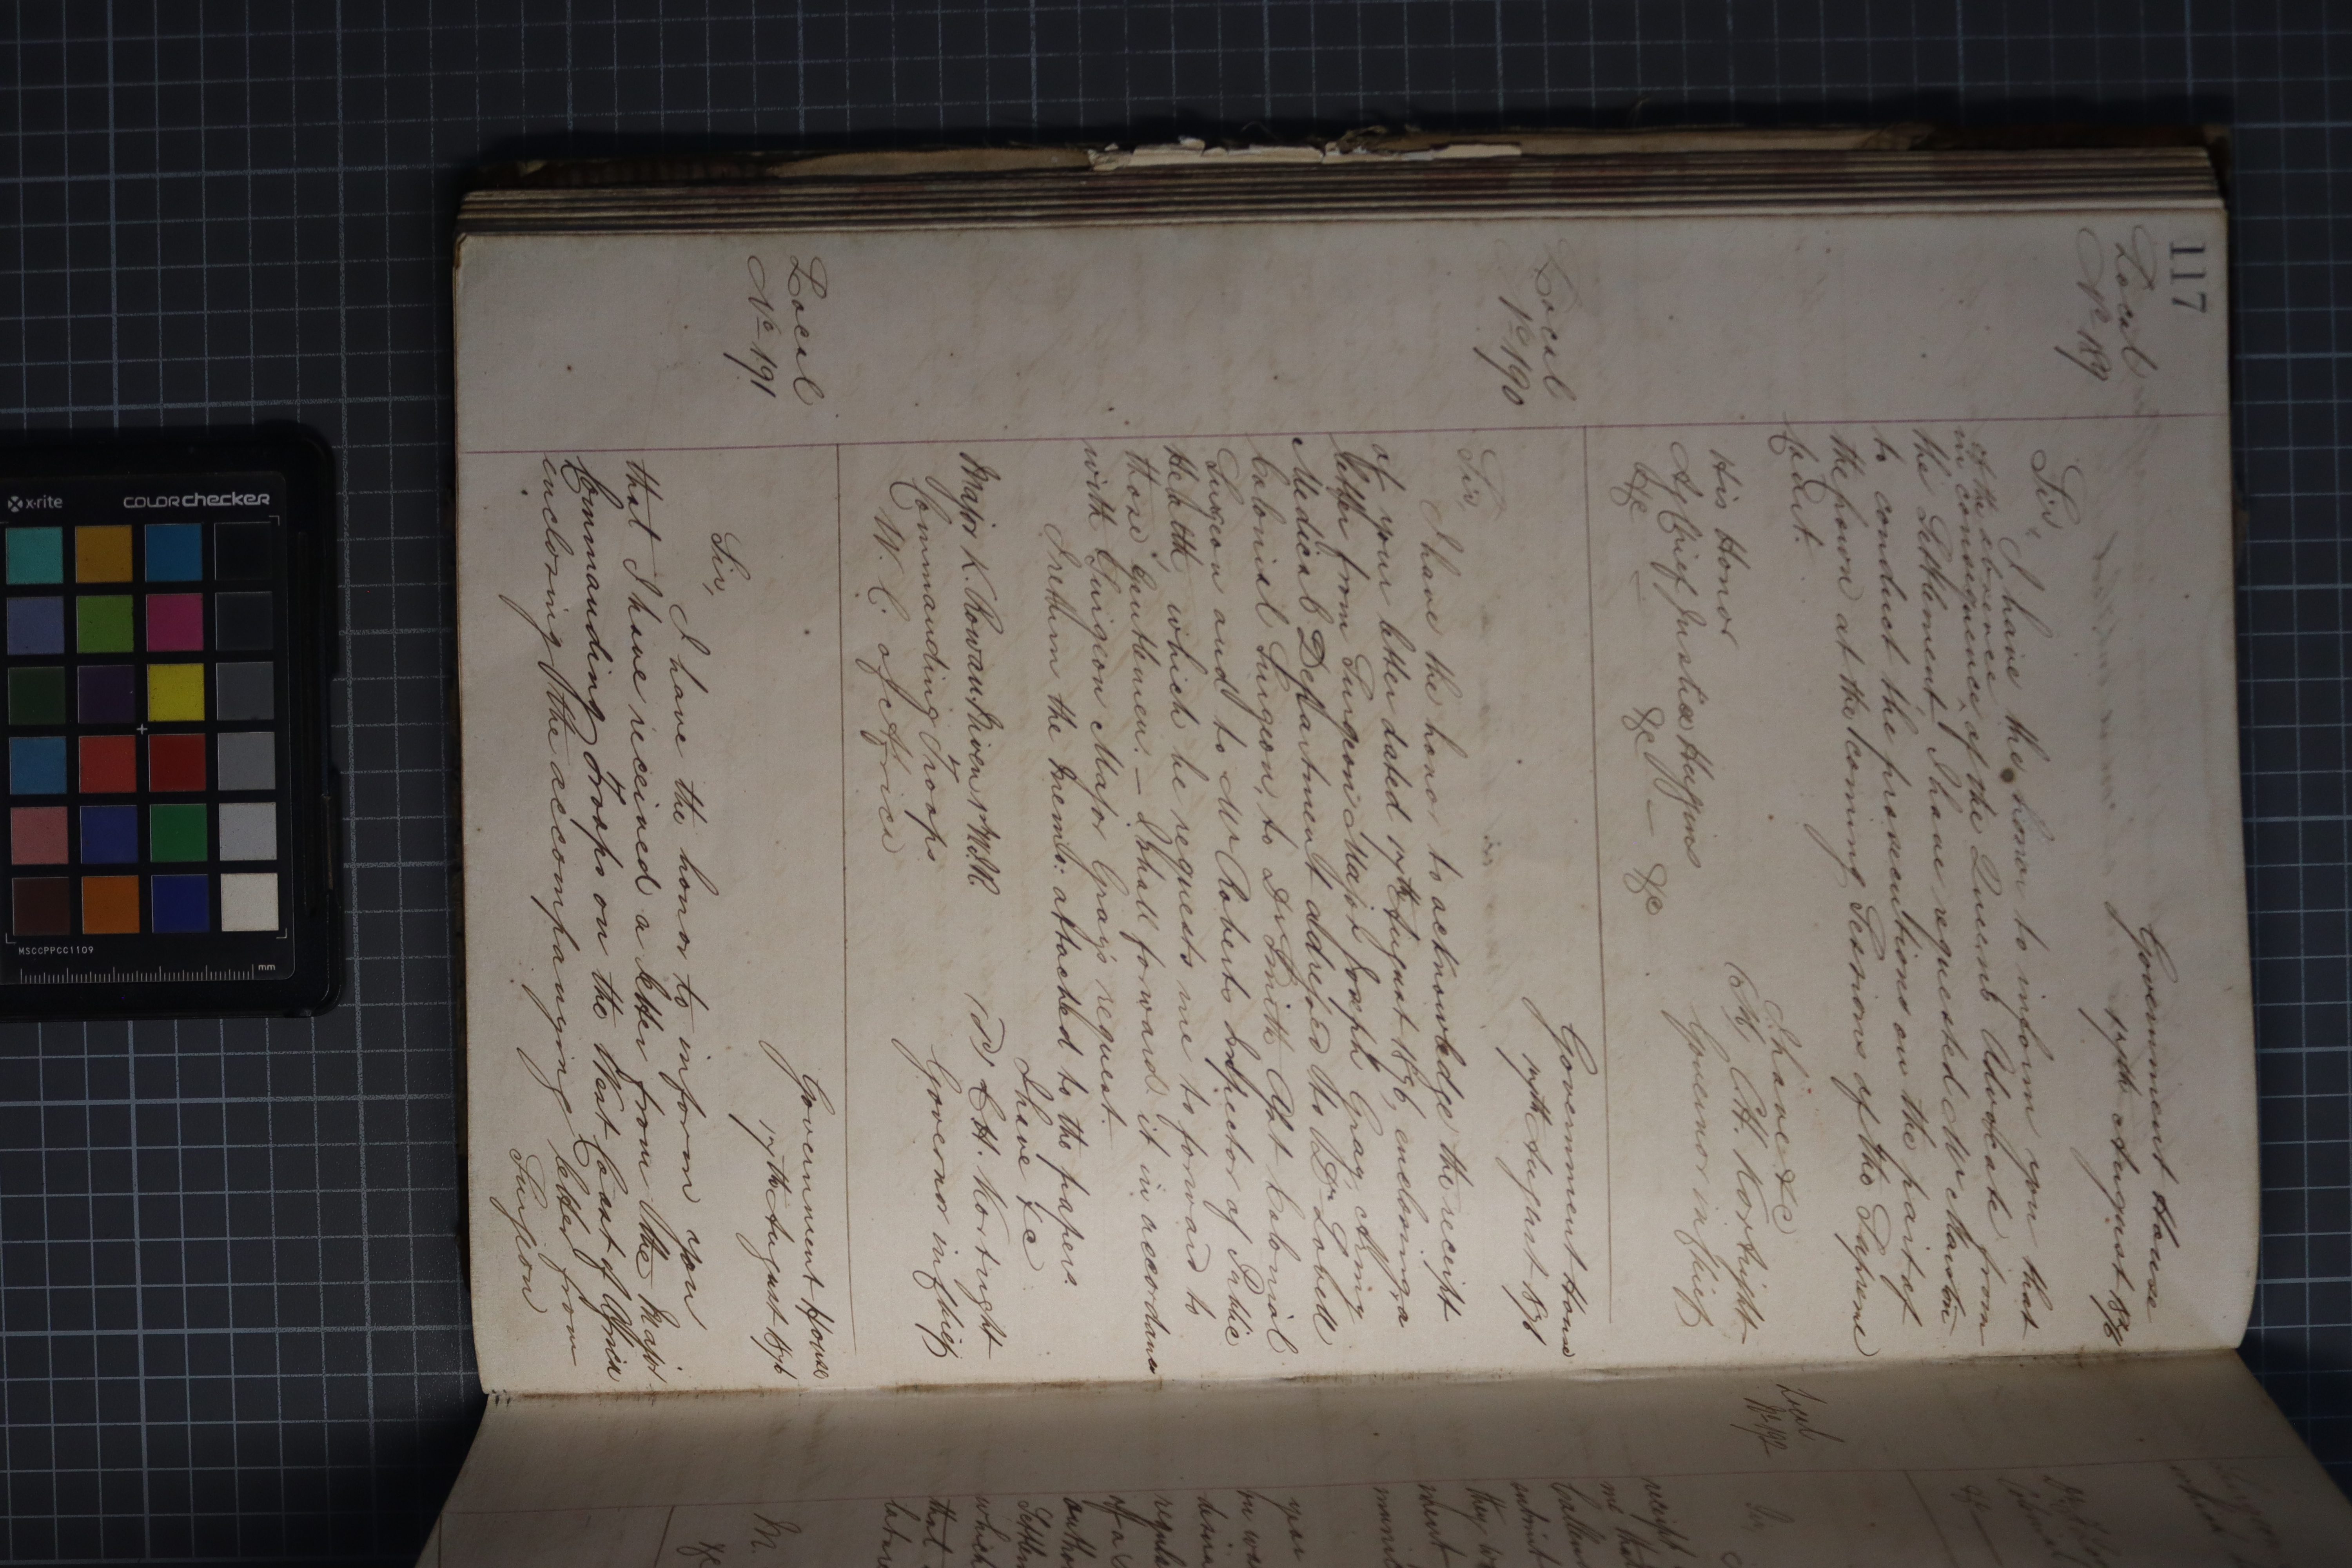 117
Local
No 189
Government House
17th August 1876
Sir,
I have the honor to inform you that
in consequence of the absence of the Queen's Advocate from
the Settlement I have requested Mr Marston
to conduct the prosecutions on the part of
the Crown at the coming Sessions of the Supreme
Court.
I have &c
C. H. Kortright
Governor in Chief
His Honor
Ag Chief Justice Huggins
&c &c &c
Local
No 190
Government House
17th August 1876
Sir,
I have the honor to acknowledge the receipt
of your letter dated 17th August 1876, enclosing a
letter from Surgeon Major Joseph Gray, Army
Medical Department addressed to Dr Lovell
Colonial Surgeon, to Dr Smith Asst Colonial
Surgeon and to Mr Roberts Inspector of Public
Health, which he requests me to forward to
those Gentlemen. — I shall forward it in accordance
with Surgeon Major Gray's request.
I return the Memo: attached to the papers.
I have &c
(Sd) C. H. Kortright
Governor in Chief
Major K. Rowan 1st W.I.R.
Commanding Troops
W. C. of Africa
Local
No 191
Government House
17th August 1876
Sir,
I have the honor to inform you
that I have received a letter from the Major
Commanding Troops on the West Coast of Africa
enclosing the accompanying letter from
Surgeon
Local
Sir,
receipt
me that
submit
they
ment
you
in
desire
regula
of a
autho
Settlem
which
that
M.